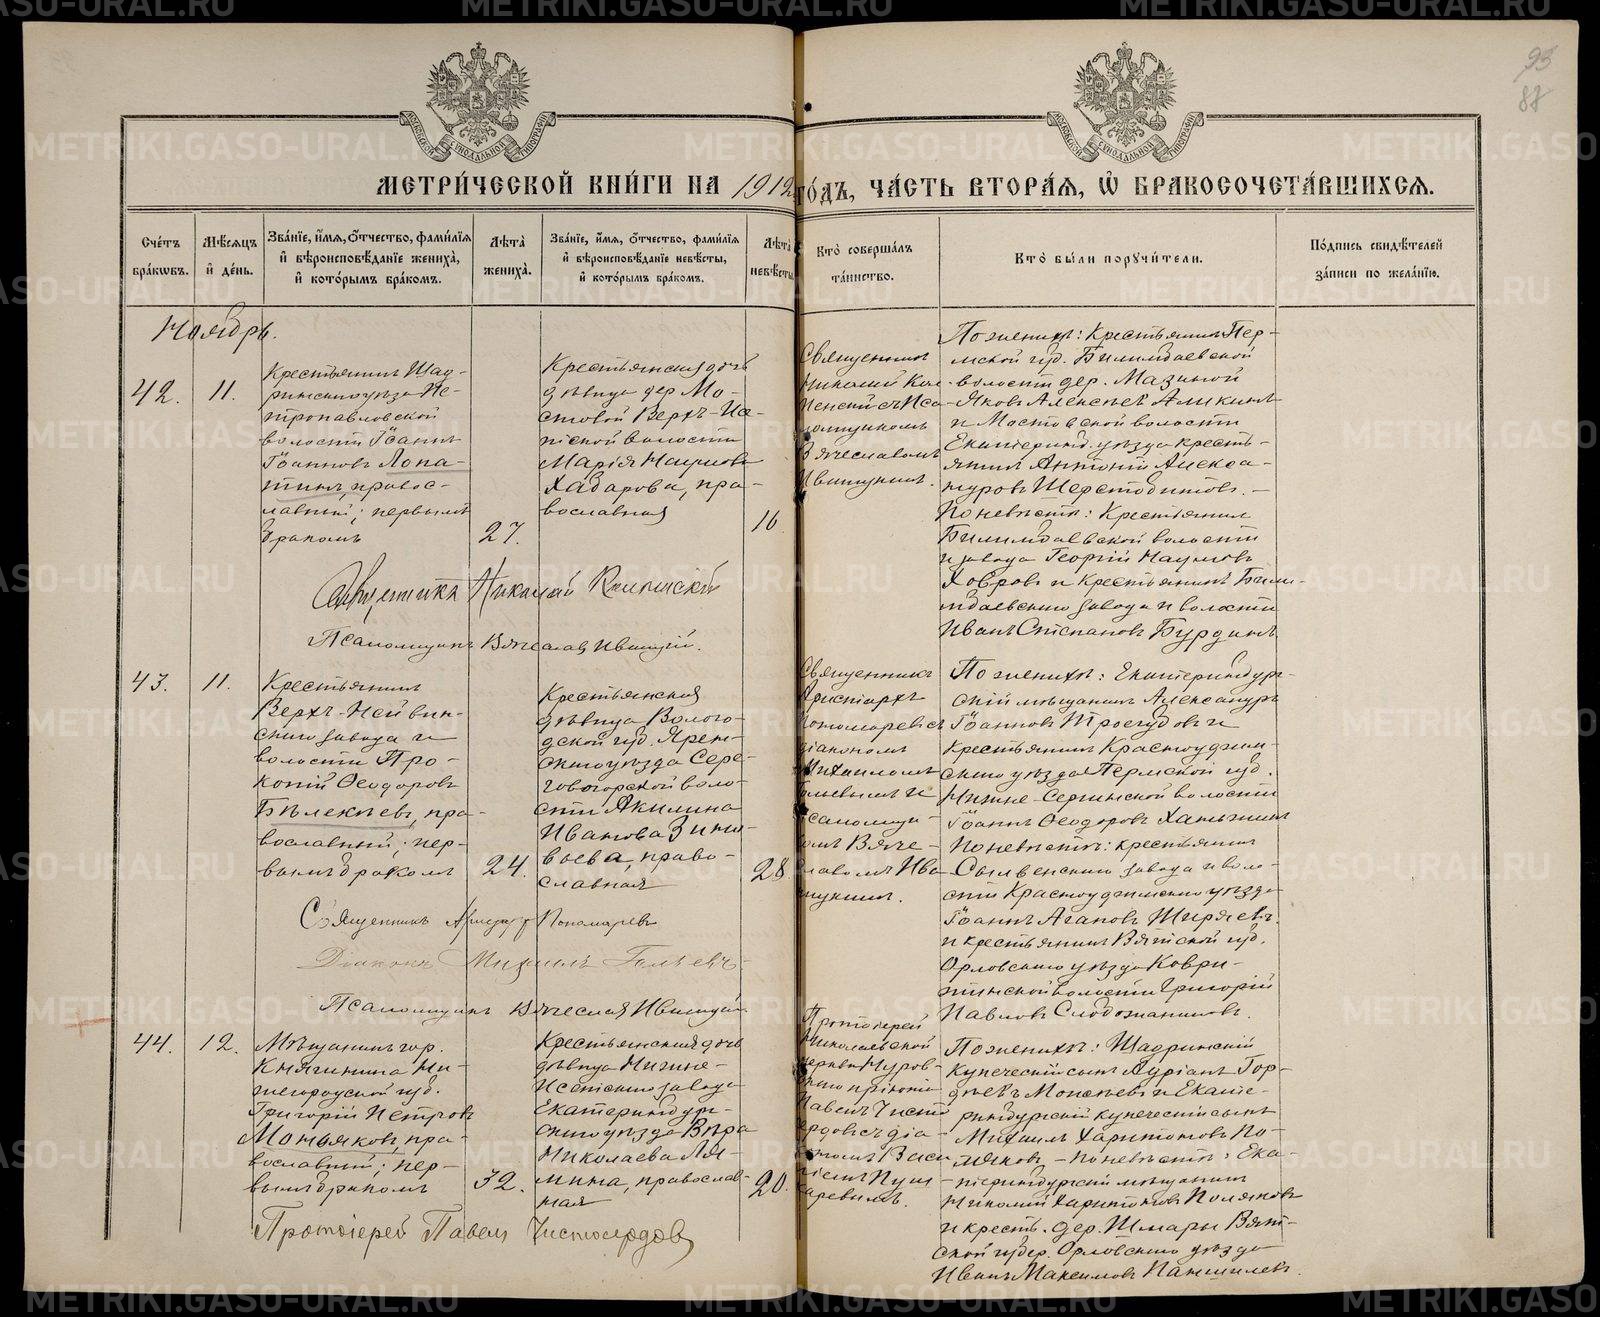 93
88
МЕТРИ́ЧЕСКОЙ КНИ́ГИ НА 1912 ГО́ДЪ, ЧА́СТЬ ВТОРА́Я, Ѽ БРАКОСОЧЕТА́ВШИХСЯ.
Сче́тъ бра́кѡвъ.
Мѣ́сяцъ и҆ де́нь.
Зва́нїе, и҆́мя, о҆́тчество, фами́лїя и҆ вѣроисповѣ́данїе жениха̀, и҆ кото́рымъ бра́комъ.
Лѣ́та̀ жениха̀.
Зва́нїе, и҆́мя, о҆́тчество, фами́лїя и҆ вѣроисповѣ́данїе невѣ́сты, и҆ кото́рымъ бра́комъ.
Лѣ́та̀ невѣ́сты.
Кто̀ соверша́лъ та́инство.
Кто̀ бы́ли порꙋчи́тели.
По́дпись свидѣ́телей за́писи по жела́нїю.
Ноябрь.
42.
11.
Крестьянинъ Шад-
ринскаго уѣзда Пе-
тропавловской
волости Іоаннъ
Іоанновъ Лопа-
тинъ, правос-
лавный; первымъ
бракомъ
27.
Крестьянская дочь
дѣвица дер. Мо-
стовой Верхъ-Ис-
етской волости
Марія Наумова
Хабарова, пра-
вославная
16
Священникъ
Николай
съ Пса
ломщикомъ
Вячеславомъ
Ивицкимъ.
По женихѣ: Крестьянинъ Пер-
мской губ. Билимбаевской
волости дер. Мазиной
Яковъ Алексѣевъ Аликинъ
и Мостовской волости
Екатеринб. уѣзда кресть-
янинъ Антоній Алекса-
ндровъ Шерстобитовъ. —
По невѣстѣ: Крестьянинъ
Билимбаевской волости
и завода Георгій Наумовъ
Ховровъ и крестьянинъ Били-
мбаевскаго завода и волости
Иванъ Степановъ Бурдинъ
Священникъ Николай
Псаломщикъ Вячеславъ Ивицкій.
43.
11.
Крестьянинъ
Верхъ-Нейвин-
скаго завода и
волости Про-
копій Ѳеодоровъ
Бѣлекѣевъ, пра-
вославный; пер-
вымъ бракомъ
24.
Крестьянская
дѣвица Волого-
дской губ. Ярен-
скаго уѣзда Сере-
говогорской воло-
сти Акилина
Иванова Зино-
вьева, право-
славная
28.
Священникъ
Аристархъ
Пономаревъ съ
діакономъ
Михаиломъ
и
псаломщи-
комъ Вяче-
славомъ Иви-
цкимъ.
По женихѣ: Екатеринбург-
скій мѣщанинъ Александръ
Іоанновъ Трегубовъ и
крестьянинъ Красноуфим-
скаго уѣзда Пермской губ.
Нижне-Сергинской волости
Іоаннъ Ѳеодоровъ
По невѣстѣ: крестьянинъ
Сылвенскаго завода и воло-
сти Красноуфимскаго уѣзда
Іоаннъ Агаповъ Ширяевъ
и крестьянинъ Вятской губ.
Орловскаго уѣзда Коври-
гинской волости Григорій
Павловъ Слободчиковъ.
Священникъ Аристархъ Пономаревъ
Діаконъ Михаилъ
Псаломщикъ Вячеславъ Ивицкій
44.
12.
Мѣщанинъ гор.
Княгинина Ни-
жегородской губ.
Григорій Петровъ
Моньяковъ, пра-
вославный; пер-
вымъ бракомъ
32.
Крестьянская дочь
дѣвица Нижне-
Исетскаго завода
Екатеринбург-
скаго уѣзда Вѣра
Николаева Ля-
мина, православ-
ная
20.
Протоіерей
Николаевской
церкви Нуров-
скаго пріюта
Павелъ Чисто
сердовъ съ діа-
кономъ Васи
ліемъ Пуш
каревымъ.
По женихѣ: Шадринскій
купеческій сынъ Адріанъ Гор-
дѣевъ Моисѣевъ и Екате-
ринбургскій купеческій сынъ
Михаилъ Харитоновъ По-
ляковъ — По невѣстѣ: Ека-
теринбургскій мѣщанинъ
Николай Харитоновъ Поляковъ
и крест. дер. Шмары Вят-
ской губер. Орловскаго уѣзда
Иванъ Максимовъ
Протоіерей Павелъ Чистосердовъ
METRIKI.GASO-URAL.RU